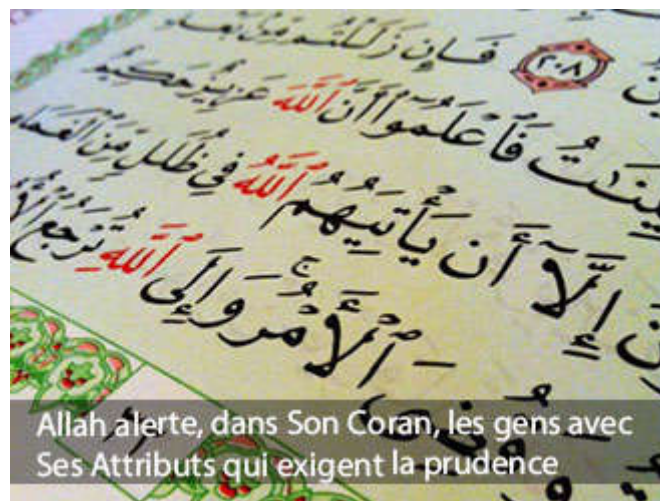 ٢٠٨ فَإِن زَلَلْتُم مِّنۢ بَعْدِ
يِّنَٰتُ فَٱعْلَمُوٓا۟ أَنَّ ٱللَّهَ عَزِيزٌ حَكِيمٌ
إِلَّآ أَن يَأْتِيَهُمُ ٱللَّهُ فِي ظُلَلٍ مِّنَ ٱلْغَمَامِ
وَقُضِيَ ٱلْأَمْرُ وَإِلَى ٱللَّهِ تُرْجَعُ
Allah alerte, dans Son Coran, les gens avec
Ses Attributs qui exigent la prudence